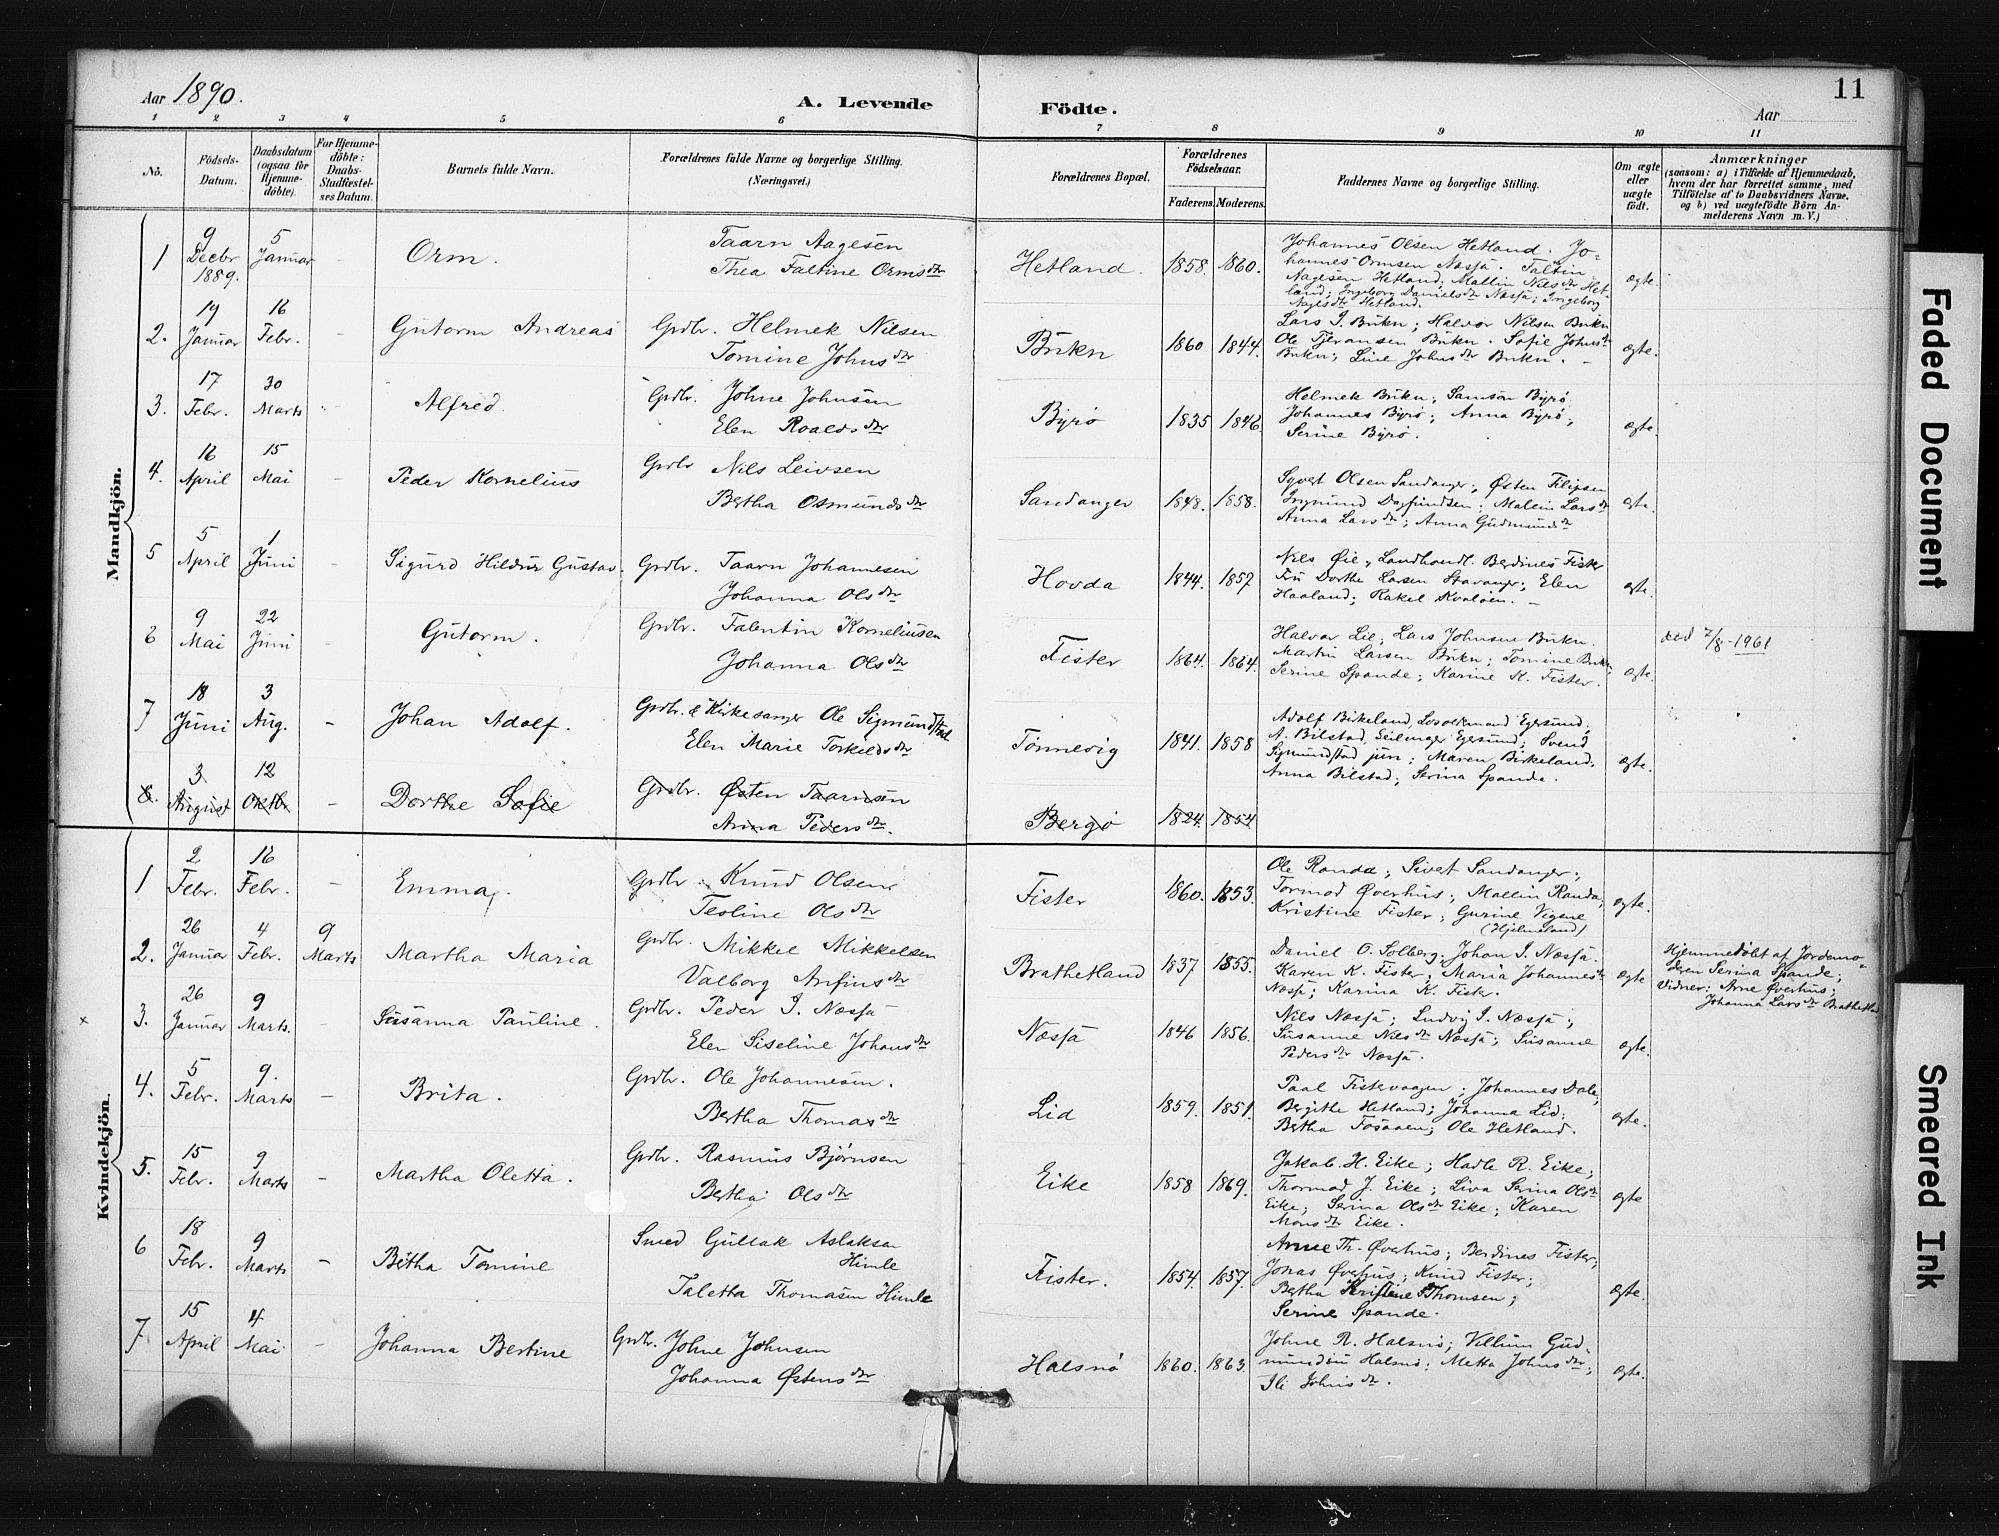 Aar 1890. A. Levende Födte. Aar 11
1 2 3 4 5 6 7 8 9 10 11
No. Födsels-Datum. Daabsdatum (ogsaa for Hjemmedöbte). For Hjemmedöbte: Daabs-Stadfæstelses Datum. Barnets fulde Navn. Forældrenes fulde Navne og borgerlige Stilling. (Næringsvei.) Forældrenes Bopæl. Forældrenes Födselsaar. Faderens. Moderens. Faddernes Navne og borgerlige Stilling. Om ægte eller uægte födt. Anmærkninger (saasom: a) i Tilfælde af Hjemmedaab, hvem der har forrettet samme, med Tilföielse af to Daabsvidners Navne, og b) ved uægtefödte Börn Anmelderens Navn m. V.)
Mandkjön.
1 9 Decbr 1889. 5 Januar - Orm. Taarn Aagesen
Thea Faltine Ormsdtr Hetland. 1858. 1860. Johannes Olsen Hetland. Jo-
hannes Ormsen Næsjä. Faltin
Aagesen Hetland. Mallin Nilsdtr Het-
land; Ingeborg Danielsdtr Næsjä; Ingeborg
Aagesdtr Hetland. ægte.
2. 19 Januar 16 Febr. - Gutorm Andreas Grdbr. Helmek Nilsen
Tomine Johnsdtr Bukn 1860 1844. Lars I. Bukn; Halvor Nilsen Bukn
Ole Tjeransen Bukn. Sofie Johnsdtr
Bukn; Line Johnsdtr Bukn. - ægte.
3. 17 Febr. 30 Marts - Alfred. Grdbr. Johne Johnsen
Elen Roaldsdtr Byrø 1835 1846. Helmek Bukn; Samson Byrø
Johannes Byrø; Anna Byrø;
Serine Byrø. ægte.
4. 16 April 15 Mai - Peder Kornelius Grdbr Nils Leivsen
Bertha Osmundsdtr Sandanger 1848. 1858. Syvert Olsen Sandanger; Østen Filipsen
Ingmund Dagfindsen; Mallin Larsdtr
Anna Larsdtr; Anna Gudmundsdtr ægte.
5 5 April 1 Juni Sigurd Hildur Gustav. Grdbr. Taarn Johannesen
Johanna Olsdtr Hovda 1844. 1857 Nils Øie, Landhandl. Berdines Fister
Fru Dorthe Larsen Stavanger; Elen
Haaland; Rakel Kvaløen. - ægte.
6 9 Mai 22 Juni Gutorm. Grdbr. Falentin Korneliusen
Johanna Olsdtr Fister 1864. 1864. Halvor Lie; Lars Johnsen Bukn.
Martin Larsen Bukn; Tomine Bukn;
Serine Spande; Karine K. Fister. ægte. død 7/8-1961
7 18 Juni 3 Aug. - Johan Adolf. Grdbr. & Kirkesanger Ole Sigmundstad
Elen Marie Torkeldsdtr Tønnevig 1841. 1858 Adolf Birkeland, Egersund;
A. Bilstad, Egersund; Svend
Sigmundstad jun; Maren Birkeland.
Anna Bilstad; Serina Spande. ægte.
8. 3 August 12 Oktb. - Dorthe Sofie Grdbr. Østen Taarnsen
Anna Pedersdtr. Bergø 1824. 1854
Kvindekjön.
1 2 Febr. 16 Febr. - Emma. Grdbr. Knud Olsen
Teoline Olsdtr Fister 1860. 1853. Ole Randa; Sivert Sandanger;
Tormod Øverhus; Mallin Randa;
Kristine Fister; Gurine Vigene
(Hjelmeland) ægte.
2. 26 Januar 4 Febr. 9 Marts Martha Maria Grdbr. Mikkel Mikkelsen
Valborg Arfinsdtr Brathetland 1837 1855. Daniel O. Solberg; Johan I. Næsjä.
Karen K. Fister; Maria Johannesdtr
Næsjä; Karina K. Fister. ægte Hjemmedøbt af Jordemo-
deren Serina Spande;
Vidner: Arne Øverhus;
Johanna Larsdtr Brathetland
x 3. 26 Januar 9 Marts. - Susanna Pauline. Grdbr. Peder I. Næsjä
Elen Siseline Johansdtr Næsjä 1846 1856. Nils Næsjä; Ludvig I. Næsjä;
Susanne Nilsdtr Næsjä; Susanne
Pedersdtr Næsjä. ægte.
4. 5 Febr. 9. Marts - Brita. Grdbr. Ole Johannesen.
Bertha Thomasdtr Lid 1859. 1851. Paal Fiskevaagen; Johannes Dale;
Bergithe Hetland; Johanna Lid;
Bertha Fosaaen; Ole Hetland. ægte.
5. 15 Febr. 9 Marts - Martha Oletta. Grdbr. Rasmus Bjørnsen
Bertha Olsdtr Eike 1858 1869. Jakob. H. Eike; Hadle R. Eike;
Thormod J. Eike; Liva Serina Olsdtr
Eike; Serina Olsdtr Eike; Karen
Monsdtr Eike. ægte
6 18 Febr. 9 Marts - Bertha Tomine Smed Gullak Aslaksen
Himle
Taletta Thomasen Himle Fister. 1854. 1857. Arne Th. Øverhus; Berdines Fister;
Jonas Øverhus; Knud Fister;
Bertha Kristine Thomsen;
Serine Spande. ægte.
7 15 April 4 Mai - Johanna Bertine Grdbr. Johne Johnsen
Johanna Østensdtr Halsnø 1860. 1863. Johne R. Halsnø; Villum Gud-
mundsen Halsnø; Metta Johnsdtr;
Ili Johnsdtr. ægte.
Faded Document
Smeared Ink